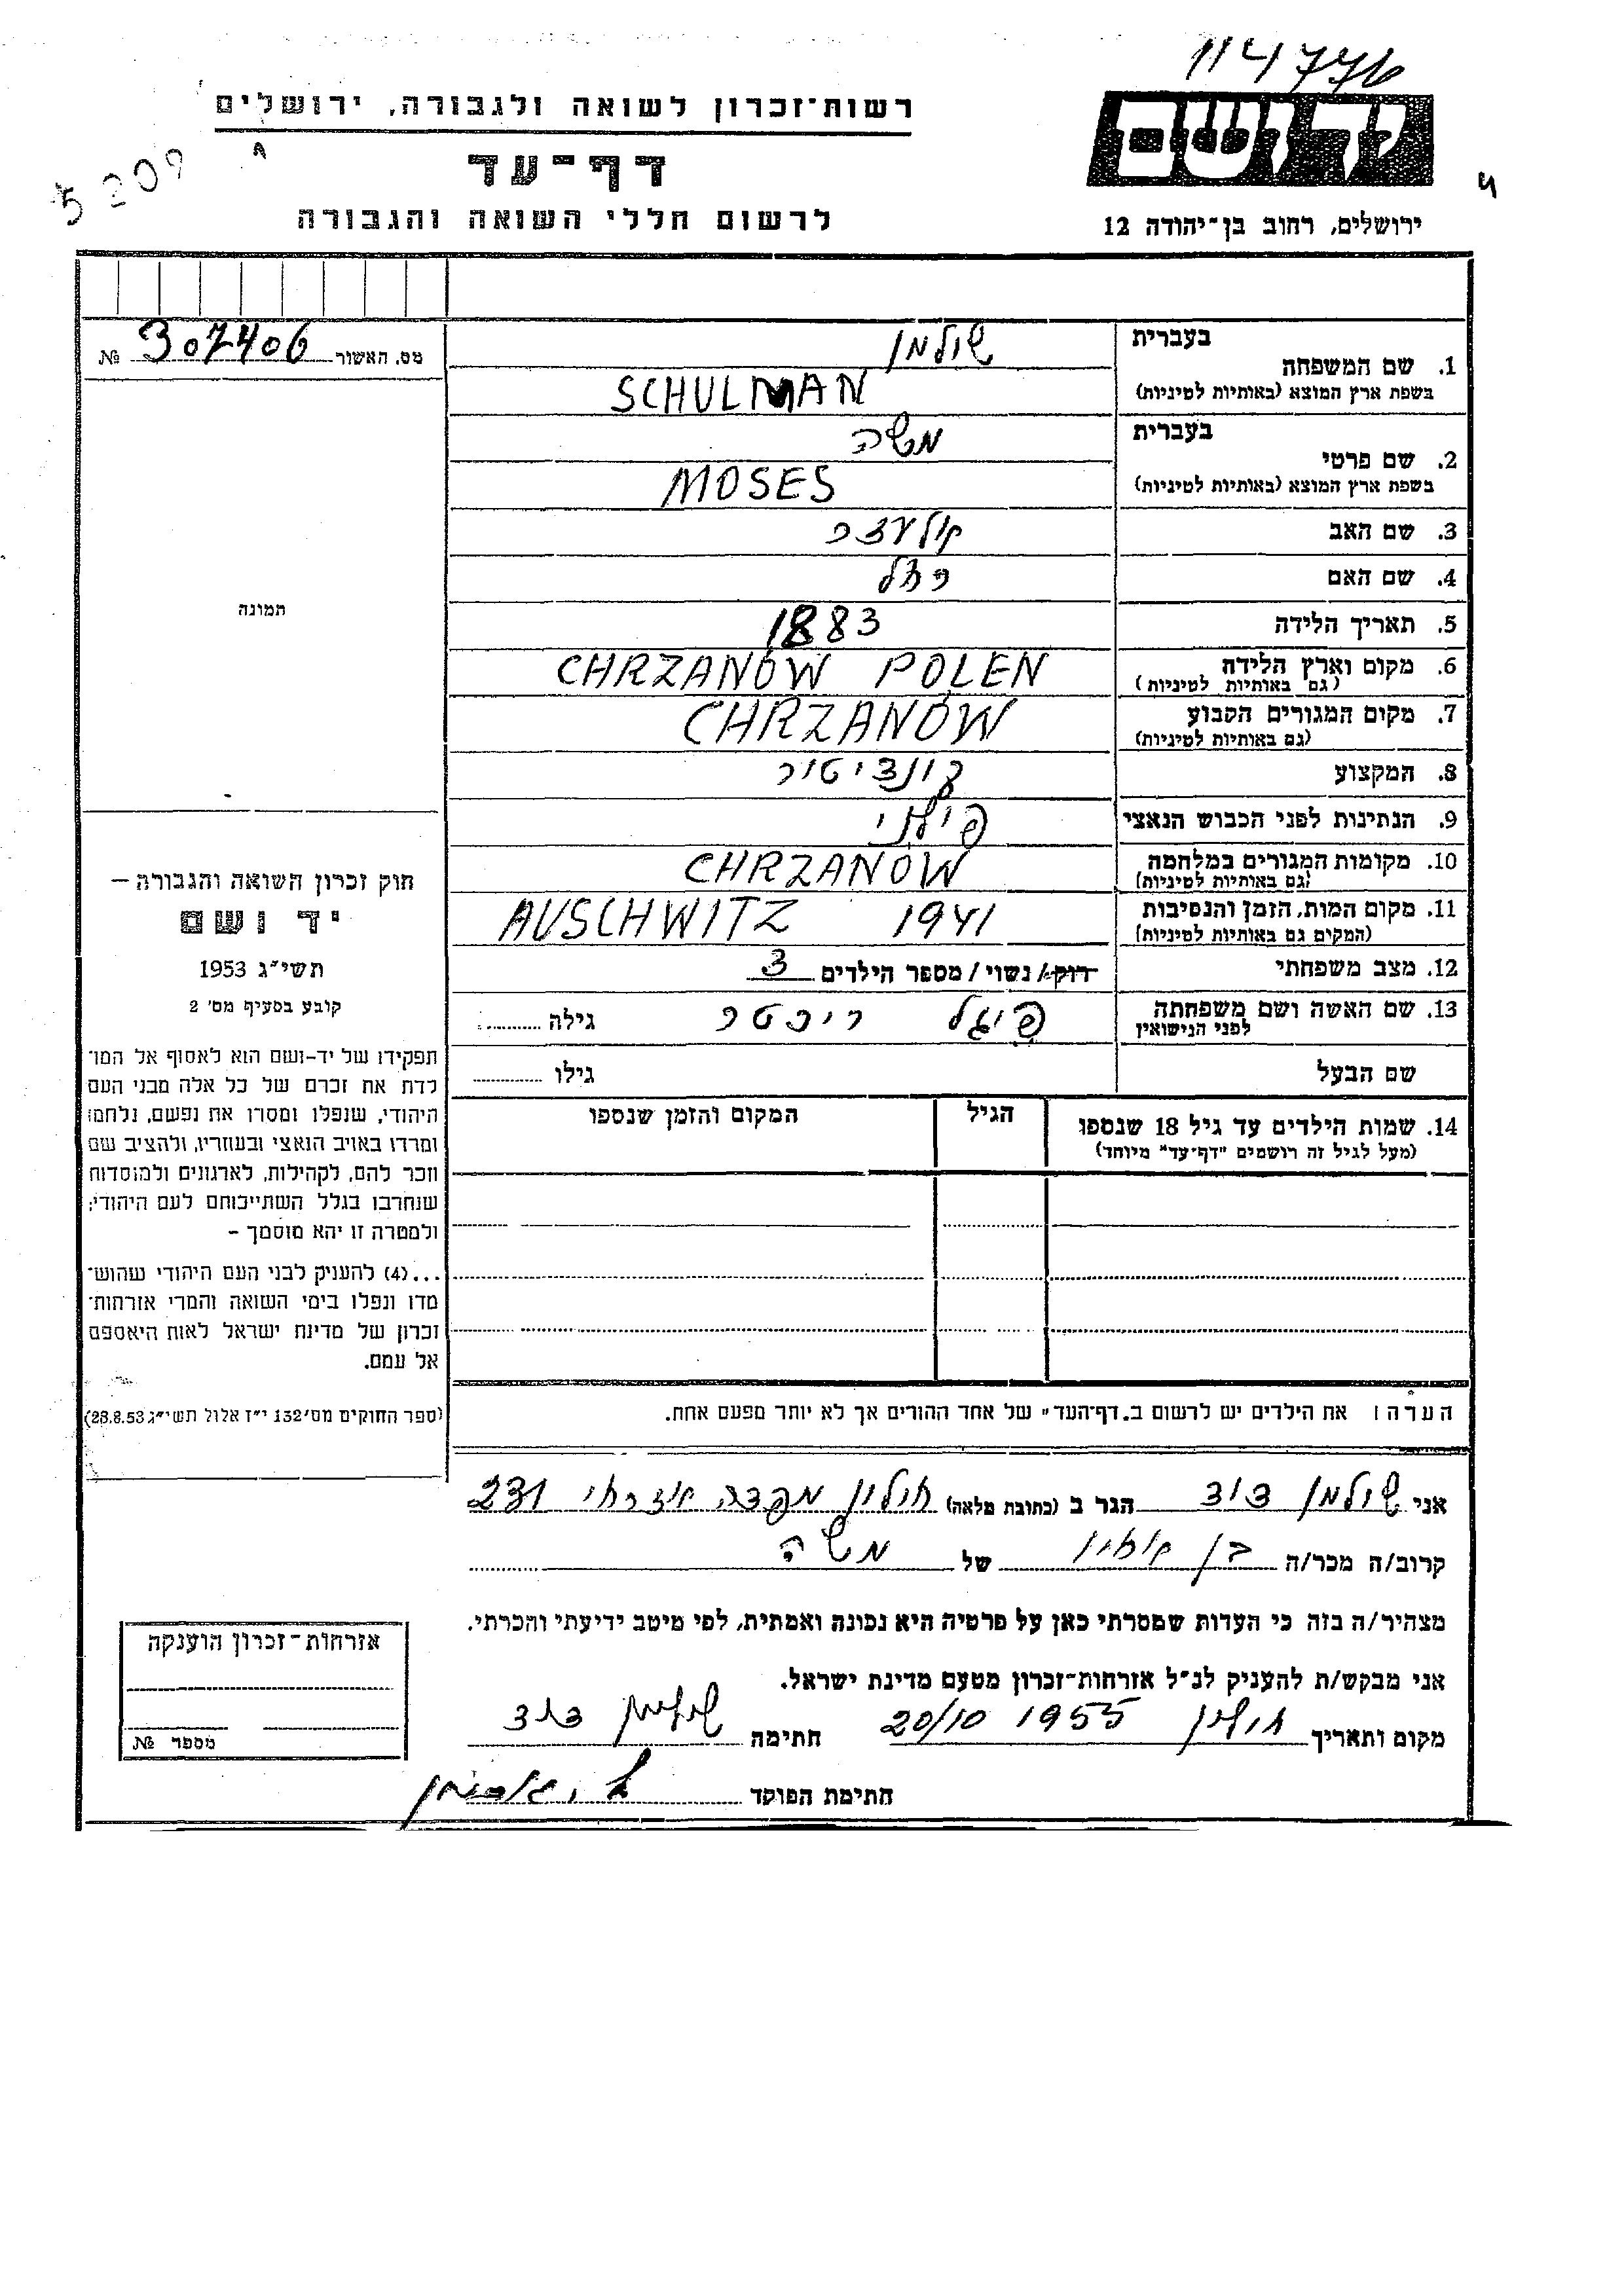 114776
רשות־זכרון לשואה ולגבורה, ירושלים
יד ושם
5209
דף־עד
לרשום חללי השואה והגבורה
ירושלים, רחוב בן־יהודה 12
מס. האשור 307406 №
בעברית שולמן
1. שם המשפחה
בשפת ארץ המוצא (באותיות לטיניות) SCHULMAN
בעברית משה
2. שם פרטי
בשפת ארץ המוצא (באותיות לטיניות) MOSES
3. שם האב
4. שם האם רחל
5. תאריך הלידה 1883
6. מקום וארץ הלידה CHRZANÓW POLEN
(גם באותיות לטיניות)
7. מקום המגורים הקבוע CHRZANÓW
(גם באותיות לטיניות)
8. המקצוע קונדיטור
9. הנתינות לפני הכבוש הנאצי פולני
10. מקומות המגורים במלחמה CHRZANÓW
(גם באותיות לטיניות)
11. מקום המות, הזמן והנסיבות AUSCHWITZ 1941
(המקום גם באותיות לטיניות)
12. מצב משפחתי רוק/נשוי/מספר הילדים 3
13. שם האשה ושם משפחתה פיגל ריכטר גילה
לפני הנישואין
שם הבעל גילו
14. שמות הילדים עד גיל 18 שנספו הגיל המקום והזמן שנספו
(מעל לגיל זה רושמים "דף־עד" מיוחד)
הערה: את הילדים יש לרשום ב„דף־העד" של אחד ההורים אך לא יותר מפעם אחת.
תמונה
חוק זכרון השואה והגבורה –
יד ושם
תשי"ג 1953
קובע בסעיף מס' 2
תפקידו של יד־ושם הוא לאסוף אל המו־
לדת את זכרם של כל אלה מבני העם
היהודי, שנפלו ומסרו את נפשם, נלחמו
ומרדו באויב הנאצי ובעוזריו, ולהציב שם
וזכר להם, לקהילות, לארגונים ולמוסדות
שנחרבו בגלל השתייכותם לעם היהודי;
ולמטרה זו יהא מוסמך –
...(4) להעניק לבני העם היהודי שהוש־
מדו ונפלו בימי השואה והמרי אזרחות־
זכרון של מדינת ישראל לאות היאספם
אל עמם.
(ספר החוקים מס' 132 י"ז אלול תשי"ג 28.8.53)
אני שולמן דוד הגר ב (כתובת מלאה) חולון 231
קרוב/ה מכר/ה בן של משה
מצהיר/ה בזה כי העדות שמסרתי כאן על פרטיה היא נכונה ואמתית, לפי מיטב ידיעתי והכרתי.
אני מבקש/ת להעניק לנ"ל אזרחות־זכרון מטעם מדינת ישראל.
מקום ותאריך חולון 20/10 1955 חתימה שולמן דוד
חתימת הפוקד
אזרחות־זכרון הוענקה
מספר №